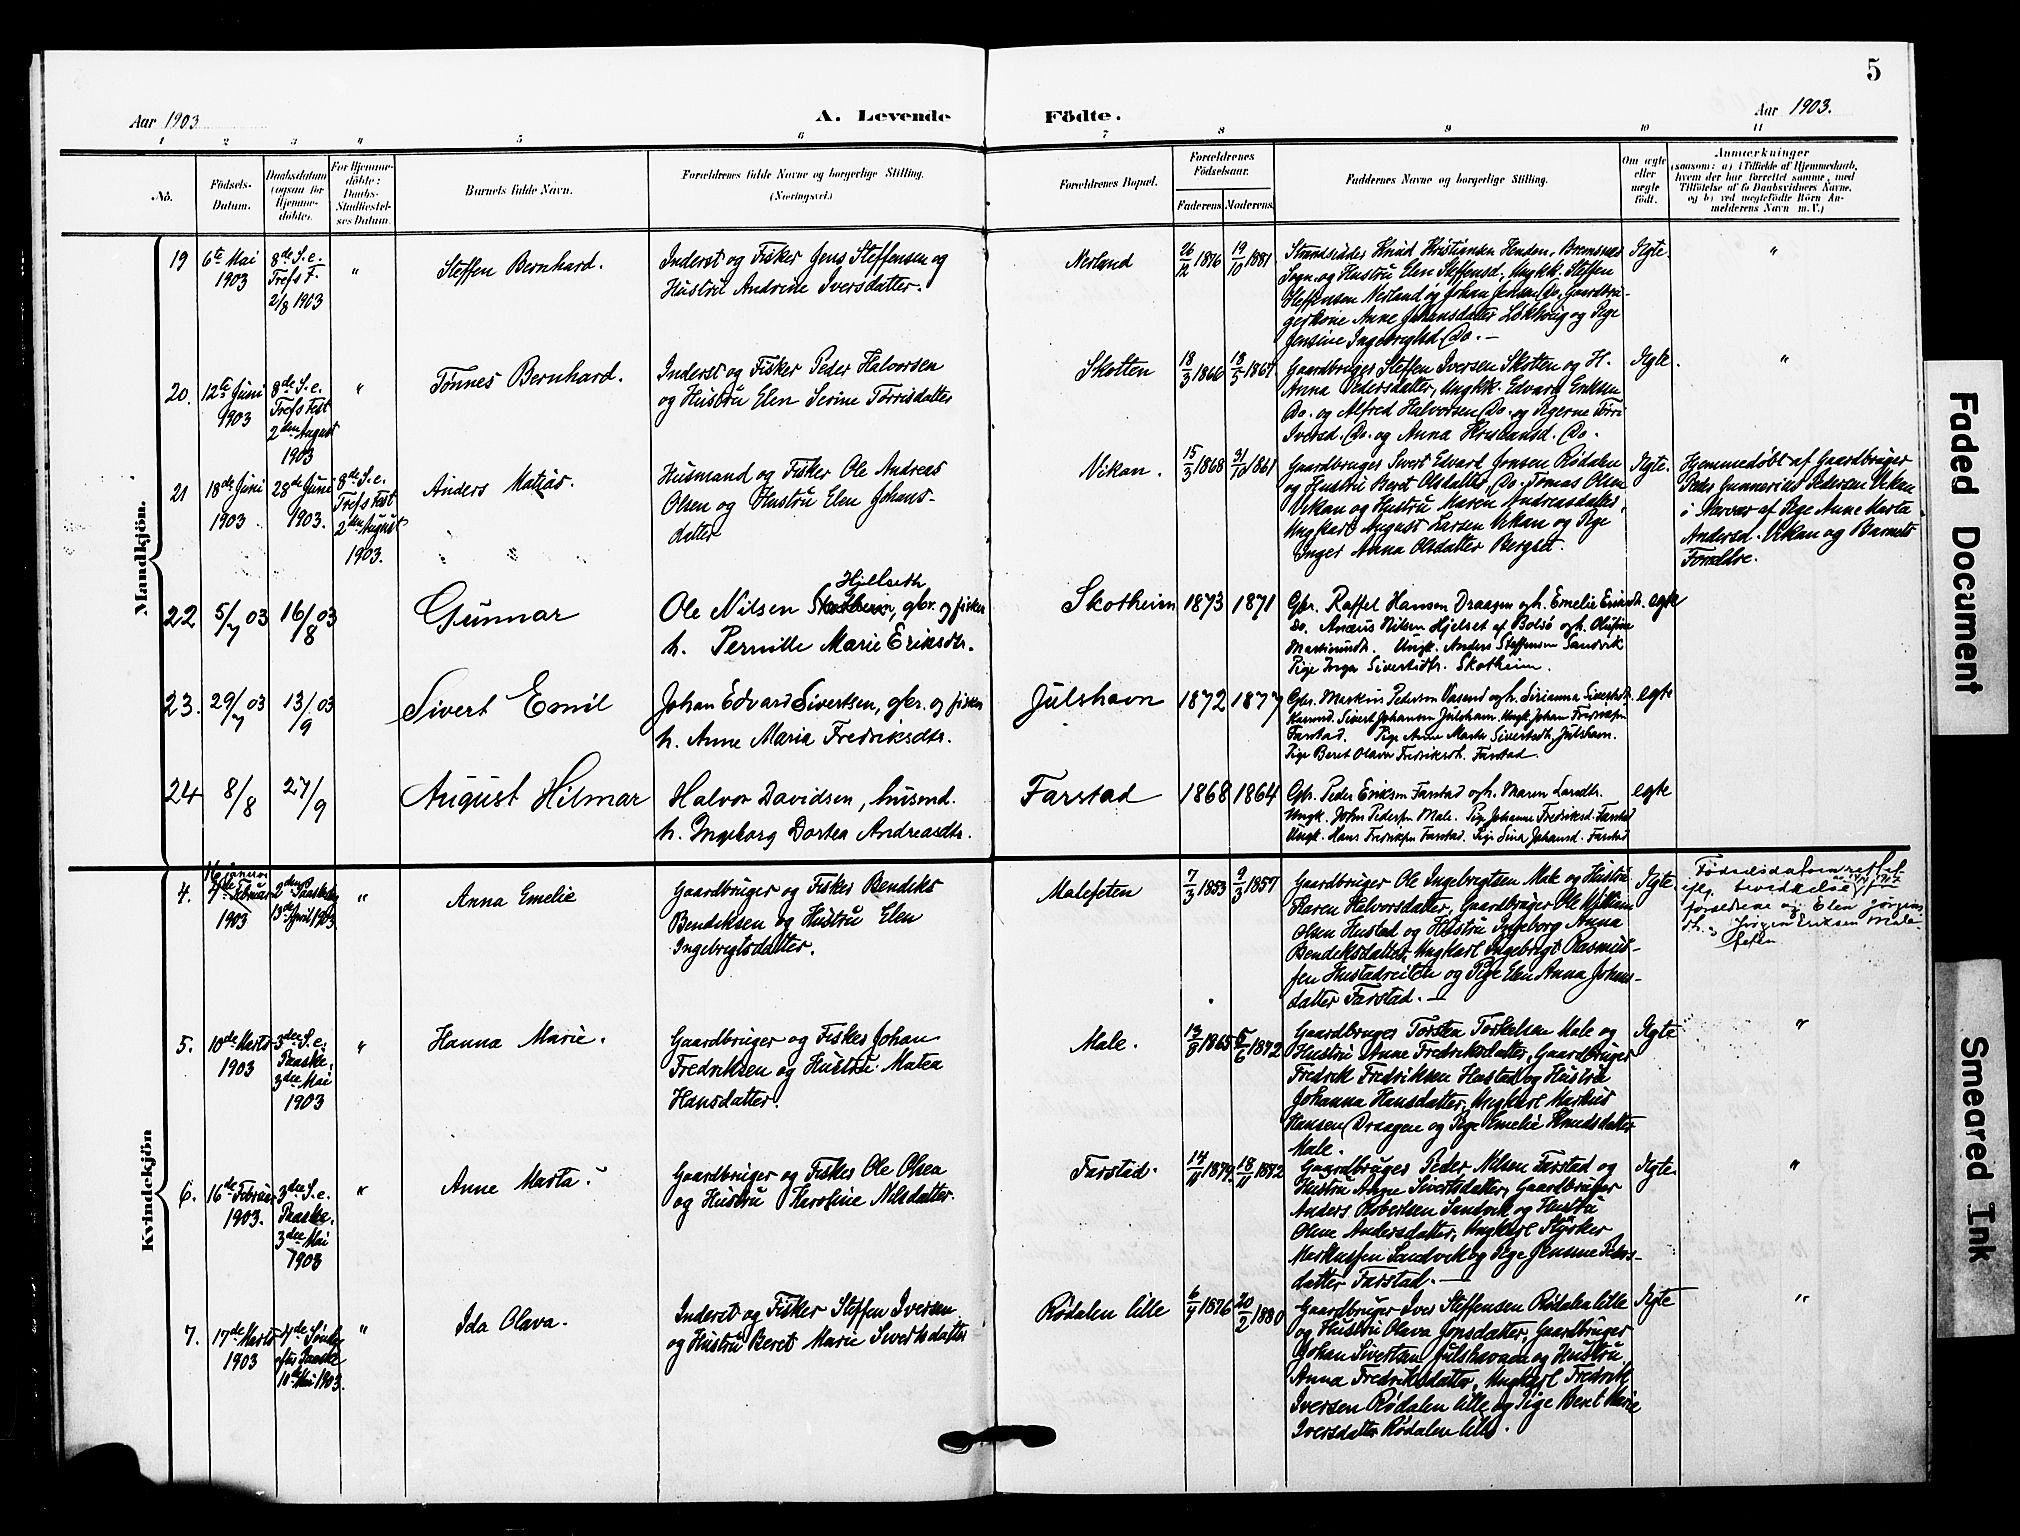 5
Aar 1903
A. Levende
Födte.
Aar 1903.
1 2 3 4 5 6 7 8 9 10 11
No.
Födsels-
Datum.
Daabsdatum
(ogsaa for
Hjemme-
döbte).
For Hjemme-
döbte:
Daabs-
Stadfæstel-
ses Datum.
Barnets fulde Navn.
Forældrenes fulde Navne og borgerlige Stilling.
(Næringsvei.)
Forældrenes Bopæl.
Forældrenes
Födselsaar.
Faderens. Moderens.
Faddernes Navne og borgerlige Stilling.
Om ægte
eller
uægte
födt.
Anmærkninger
(saasom: a) i Tilfælde af Hjemmedaab,
hvem der har forrettet samme, med
Tilföielse af to Daabsvidners Navne,
og b) ved uægtefödte Börn An-
melderens Navn m. V.)
Mandkjön.
19
6te Mai
1903
8de S. e.
Trefs F.
2/8 1903
"
Steffen Bernhard.
Inderst og Fisker Jens Steffensen og
Hustru Andrine Iversdatter.
Nesland
26/12 1876
19/10 1881
Strandsidder Knud Kristiansen Henden, Bremsnes
Sogn og Hustru Elen Steffensd, Ungk. Steffen
Steffensen Nesland og Johan Jensen Do, Gaardbru-
gerkone Anne Johansdatter Løkhaug og Pige
Jensine Ingebrigtsd. Do. —
Ægte.
"
20.
12te Juni
1903
8de S. e.
Trefs Fest
2den August
1903
"
Tønnes Bernhard.
Inderst og Fisker Peder Halvorsen
og Hustru Elen Serine Torrisdatter
Skotten
18/3 1866
18/5 1867
Gaardbruger Steffen Iversen Skotten og H.
Anna Pedersdatter, Ungkk. Edvard Eriksen
Do. og Alfred Halvorsen Do. og Pigerne Torri
Iversd. Do. og Anna Kristiansd. Do.
Ægte.
"
21
18de Juni
1903
28de Juni
1903.
8de S. e.
Trefs Fest
2den August
1903.
Anders Matias.
" "
Husmand og Fisker Ole Andreas
Olsen og Hustru Elen Johans-
datter
Vikan.
15/3 1868
31/10 1861
Gaardbruger Sivert Edvard Jonsen Rødalen
og Hustru Beret Olsdatter Do. Tomas Olsen
Vikan og Hustru Maren Andreasdatter,
Ungkarl August Larsen Vikan og Pige
Inger Anna Olsdatter Bergset.
Ægte.
Hjemmedøbt af Gaardbruger
Peder Gunnerius Pedersen Vikan
i Nærvær af Pige Anne Marta
Andersd. Vikan og Barnets
Forældre.
22
5/7 03
16/8 03
Gunnar
Hjelseth
Ole Nilsen Skotheim, gbr. og fisker
h. Pernille Marie Eriksdtr.
Skotheim
1873
1871
Gbr. Raffel Hansen Draagen og h. Emelie Eriksdtr.
Do. Anæus Nilsen Hjelset af Bolsø og h. Olufine
Martinusdtr. Ungk. Anders Steffensen Sandvik
Pige Inga Sivertsdtr. Skotheim.
egte
23.
29/7 03
13/9 03
Sivert Emil
Johan Edvard Sivertsen, gbr. og fisker
h. Anne Maria Fredriksdtr.
Julshavn
1872
1877
Gbr. Markus Pederson Vasend og h. Sirianna Sivertsdtr.
Sivert Johansen Julshavn. Ungk. Johan Fredriksen
Farstad. Pige Ane Marte Sivertsdtr. Julshavn.
Pige Beret Olava Fredriksdtr. Farstad.
egte
24
8/8
27/9
August Hilmar
Halvor Davidsen, husmd.
h. Ingeborg Dortea Andreasdtr.
Farstad
1868
1864
Gbr. Peder Eriksen Farstad og h. Maren Larsdtr.
Ungk. John Pedersen Male. Pige Johanne Fredriksd. Farstad
Ungk. Hans Fredriksen Farstad. Pige Sina Johansd. Farstad
egte
Kvindekjön
4.
16 januar
4de Februar
1903
2den Paaskedag
13de April 1903.
"
Anna Emelie
Gaardbruger og Fisker Bendiks
Bendiksen og Hustru Elen
Ingebrigtsdatter.
Malefeten
7/3 1853
9/3 1857
Gaardbruger Ole Ingebrigtsen Male og Hustru
Karen Halvorsdatter, Gaardbruger Ole
Olsen Hustad og Hustru Ingeborg Anna
Bendiksdatter, Ungkarl Ingebrigt Rasmus-
sen Hustadreiten og Pige Elen Anna Johans-
datter Farstad. —
Ægte.
Fødselsdatum rettet
iflg. bevidnelse fra
forældrene og Elen Jørgens
dtr. og Jørgen Eriksen Male-
feten
5.
10de Marts
1903
3die S. e.
Paaske,
3die Mai
1903
"
Hanna Marie.
Gaardbruger og Fisker Johan
Fredriksen og Hustru Matea
Hansdatter.
Male.
13/8 1865
5/6 1872
Gaardbruger Torsten Torkelsen Male og
Hustru Anne Fredriksdatter, Gaardbruger
Fredrik Fredriksen Hustad og Hustru
Johanna Hansdatter, Ungkarl Markus
Hansen Draagen og Pige Emelie Knudsdatter
Male.
Ægte
"
6.
16de Februar
1903.
3die S. e.
Paaske,
3die Mai
1903
"
Anne Marta.
Gaardbruger og Fisker Ole Olsen
og Hustru Karoline Nilsdatter.
Farstad.
14/11 1879
18/11 1872
Gaardbruger Peder Nilsen Farstad og
Hustru Anne Sivertsdatter, Gaardbruger
Anders Robertsen Sandvik og Hustru
Oline Andersdatter, Ungkarl Styrker
Markussen Sandvik og Pige Jensine Peders-
datter Farstad. —
Ægte.
"
7.
17de Marts
1903
4de Søndag
efter Paaske
10de Mai 1903.
"
Ida Olava.
Inderst og Fisker Steffen Iversen
og Hustru Beret Marie Sivertsdatter
Rødalen lille
6/7 1876
20/2 1880
Gaardbruger Iver Steffensen Rødalen lille
og Hustru Olava Jonsdatter, Gaardbruger
Johan Sivertsen Julshavn og Hustru
Anna Fredriksdatter, Ungkarl Fredrik
Iversen Rødalen lille og Pige Beret Marie
Iversdatter Rødalen lille.
Ægte
"
Faded Document
Smeared Ink